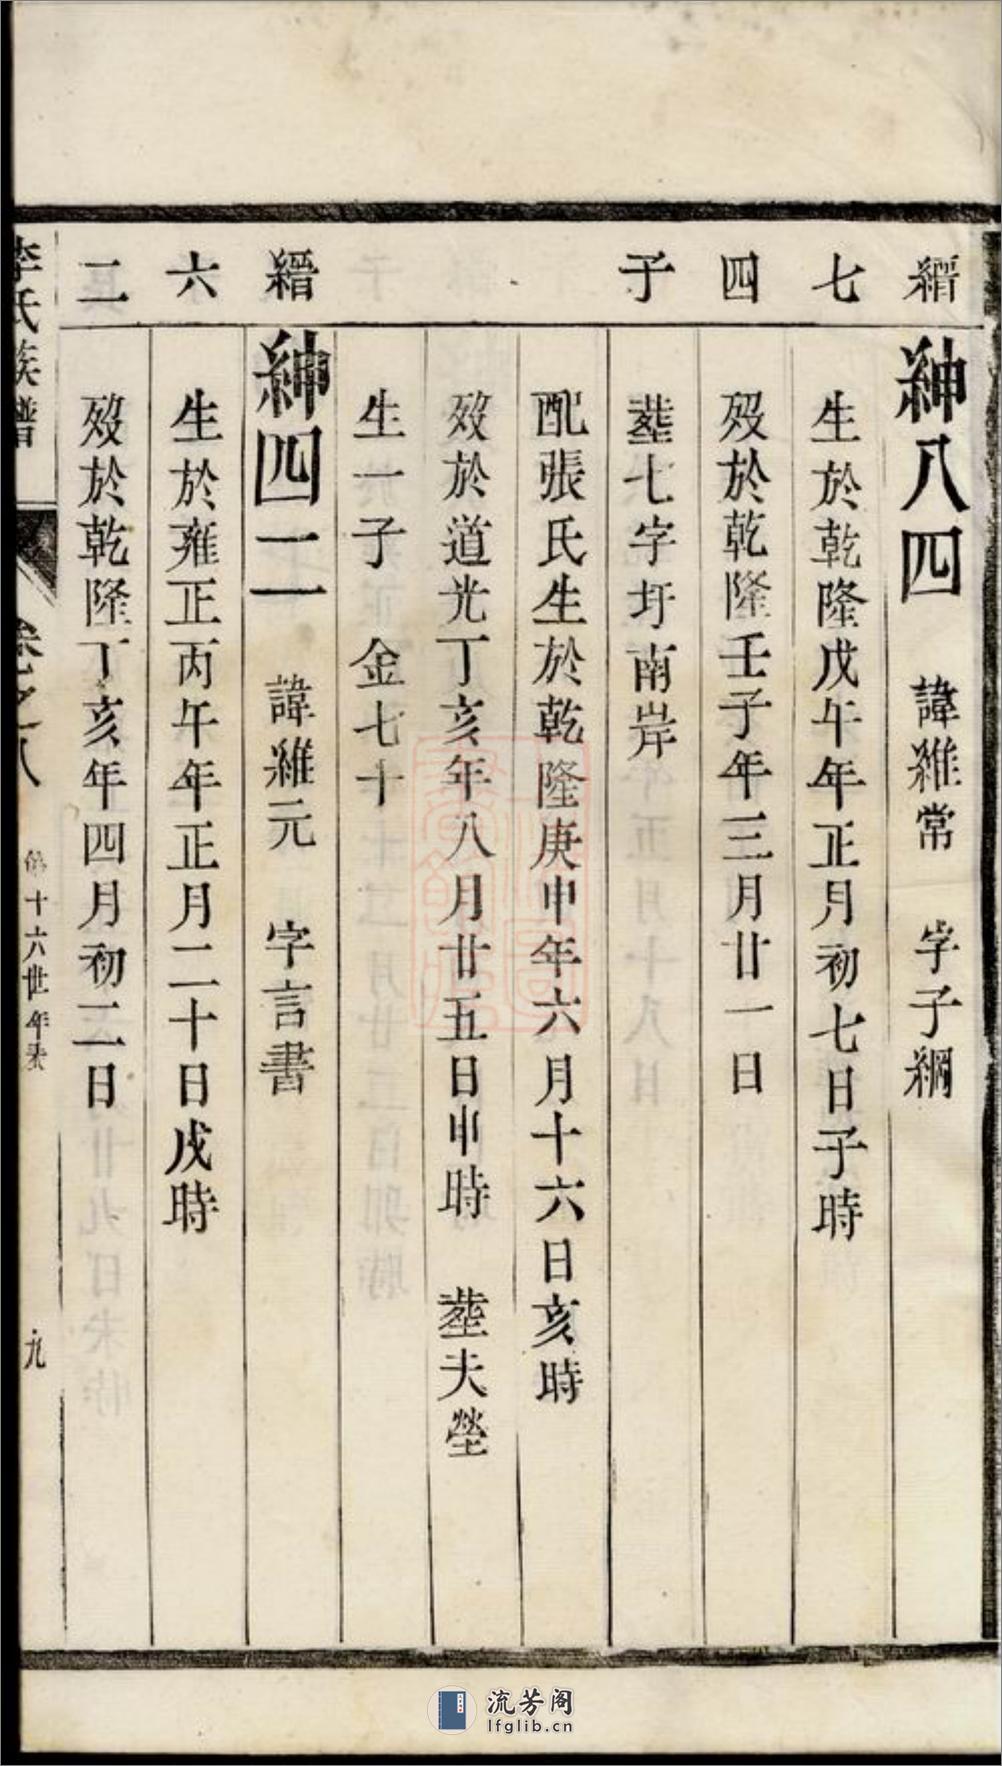 縉 紳八四 諱維常 字子綱
七 生於乾隆戊午年正月初七日子時
四 歿於乾隆壬子年三月廿一日
子 塟七字圩南岸
配張氏生於乾隆庚申年六月十六日亥時
歿於道光丁亥年八月廿五日申時 塟夫塋
生一子 金七十
縉 紳四二 諱維元 字言書
六 生於雍正丙午年正月二十日戌時
二 歿於乾隆丁亥年四月初二日
李氏族譜 卷之八 十六世年表 九
流芳阁
lfglib.cn